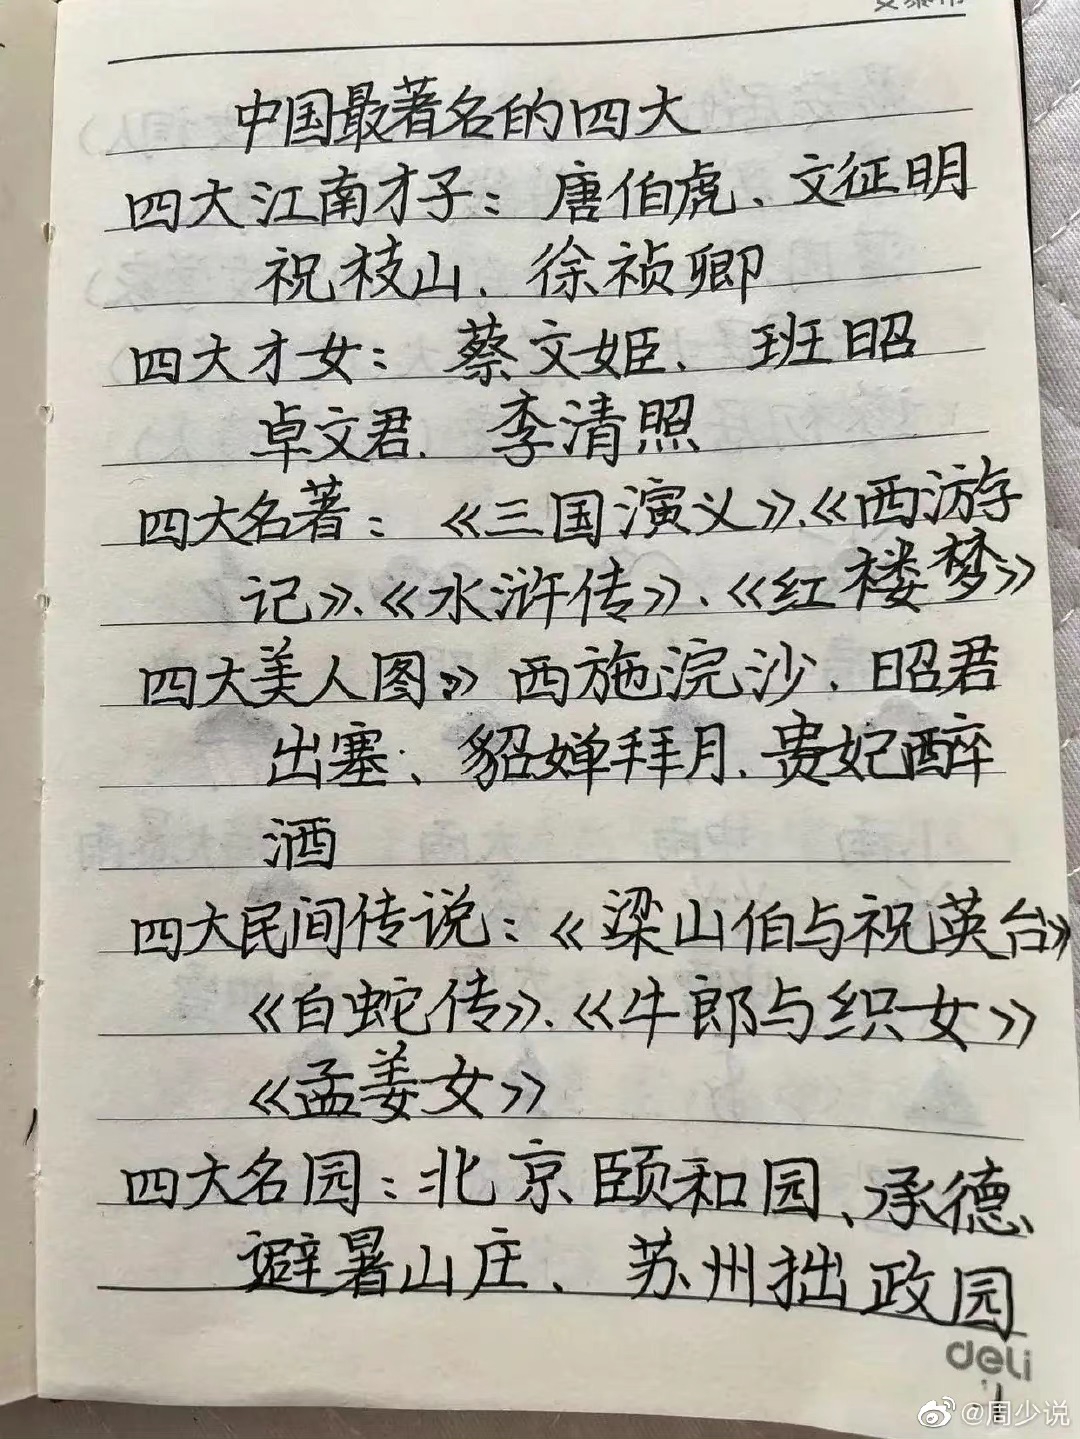 中国最著名的四大
四大江南才子：唐伯虎、文征明
祝枝山、徐祯卿
四大才女：蔡文姬、班昭
卓文君、李清照
四大名著：《三国演义》、《西游
记》、《水浒传》、《红楼梦》
四大美人图》西施浣沙、昭君
出塞、貂婵拜月、贵妃醉
酒
四大民间传说：《梁山伯与祝英台》
《白蛇传》、《牛郎与织女》
《孟姜女》
四大名园：北京颐和园、承德、
避暑山庄、苏州拙政园
deli
@周少说